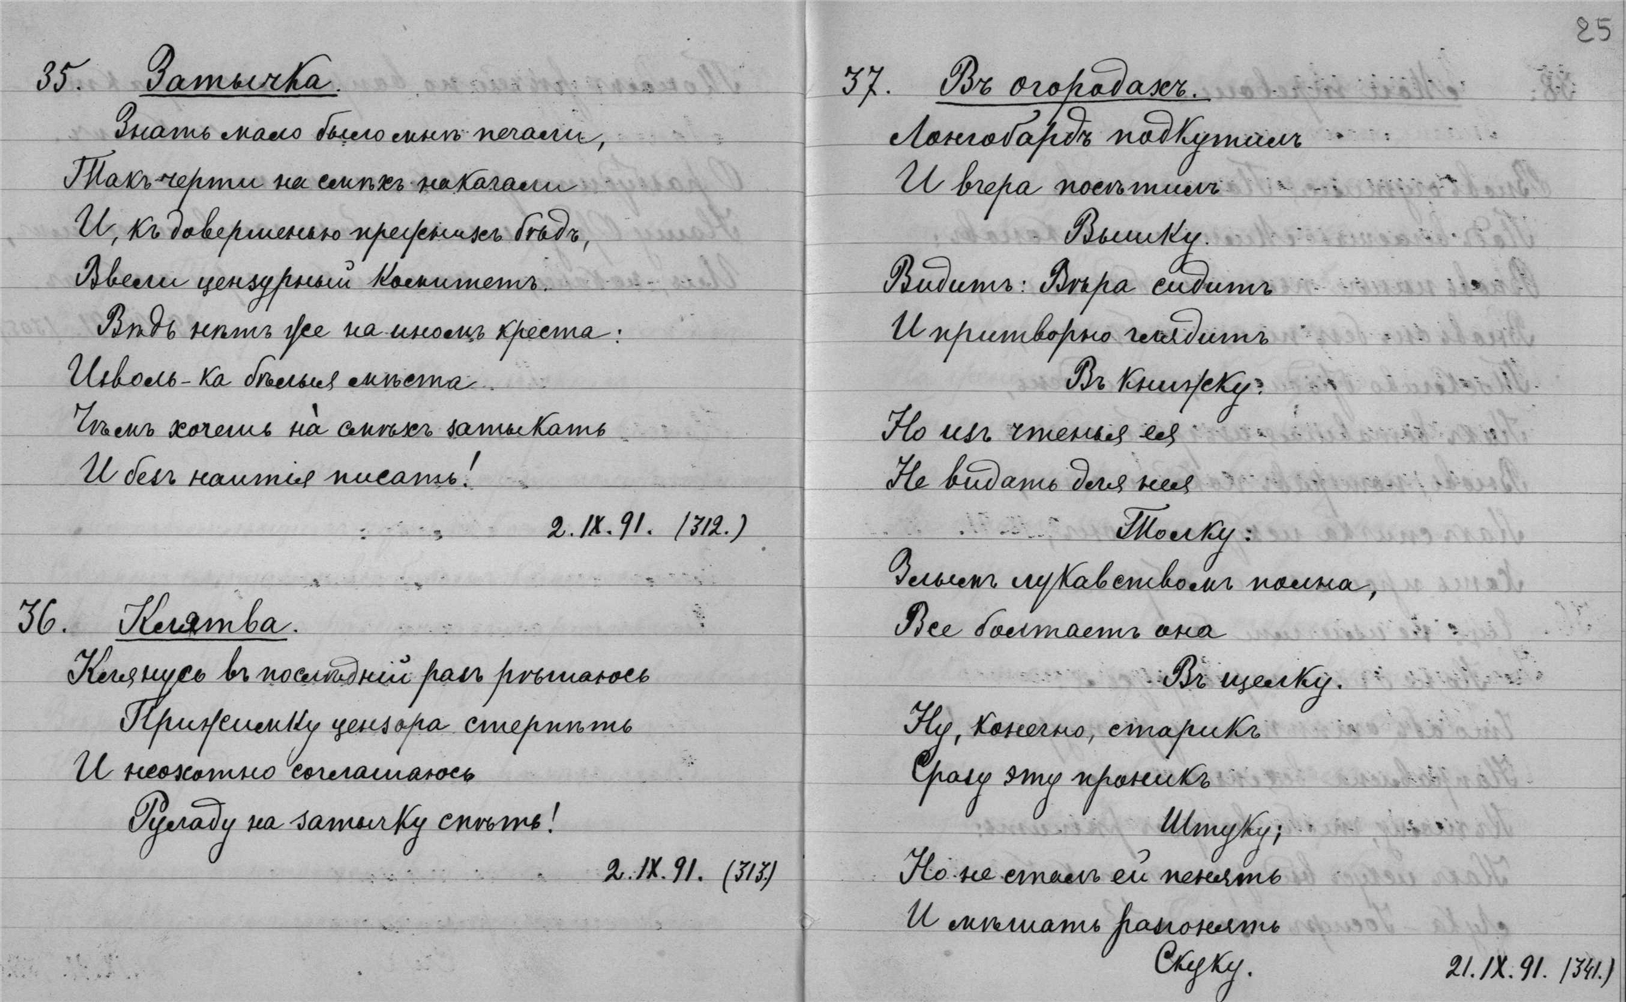 35. Затычка.
Знать мало было мнѣ печали,
Такъ черти на смѣхъ накачали
И, къ довершенью прежнихъ бѣдъ,
Ввели цензурный комитетъ.
Вѣдь нѣтъ же на иномъ креста:
Изволь-ка бѣлыя мѣста
Чѣмъ хочешь на̀ смѣхъ затыкать
И безъ наитія писать!
2.IX.91. (312.)
36. Клятва.
Клянусь въ послѣдній разъ рѣшаюсь
Прижимку цензора стерпѣть
И неохотно соглашаюсь
Руладу на затычку спѣть!
2.IX.91. (313.)
25
37. Въ огородахъ.
Лонгобардъ подкутилъ
И вчера посѣтилъ
Вышку.
Видитъ: Вѣра сидитъ
И притворно глядитъ
Въ книжку:
Но изъ чтенья ея
Не видать для нея
Толку:
Злымъ лукавствомъ полна,
Все болтаетъ она
Въ щелку.
Ну, конечно, старикъ
Сразу эту проникъ
Штуку;
Но не сталъ ей пенять
И мѣшать разгонять
Скуку.
21.IX.91. (341.)